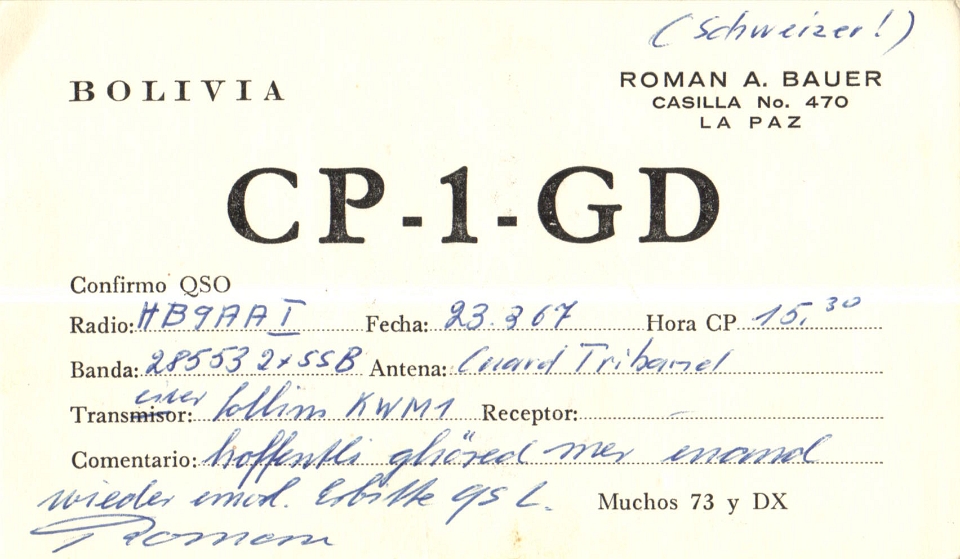 (Schweizer!)
BOLIVIA
ROMAN A. BAUER
CASILLA No. 470
LA PAZ
CP-1-GD
Confirmo QSO
Radio: HB9AAI Fecha: 23.3 67 Hora CP 15.30
Banda: 28553 2xSSB Antena: Triband
Transmisor: Collins KWM1 Receptor: –
Comentario: hoffentli ghöred mer enand
wieder emol. Erbitte QSL. Muchos 73 y DX
Roman